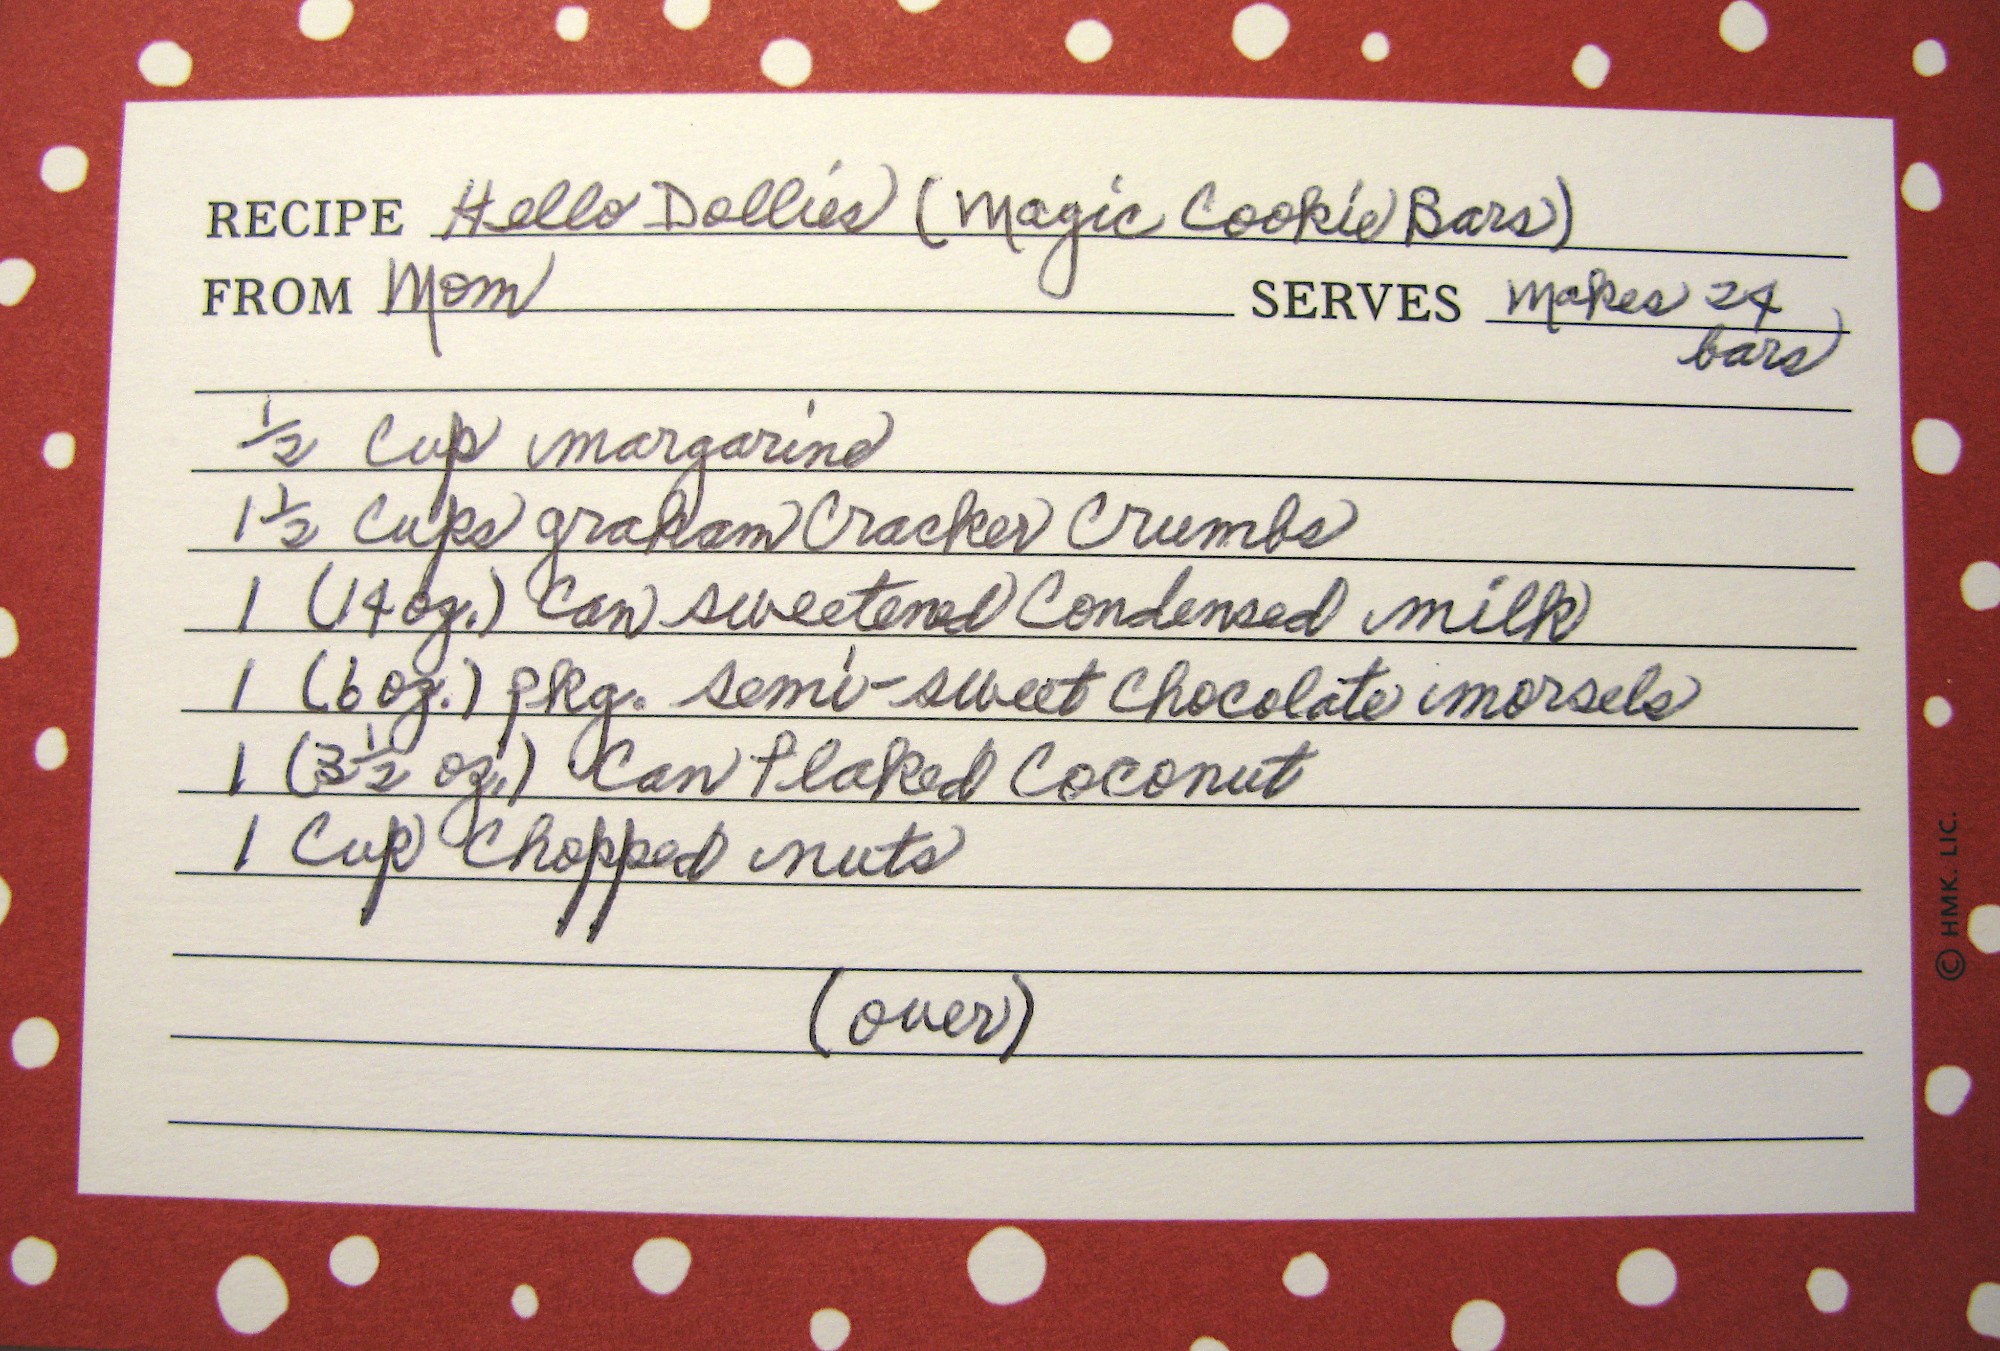 RECIPE Hello Dollies (Magic Cookie Bars)
FROM Mom SERVES Makes 24
bars
1/2 Cup margarine
1 1/2 Cups graham Cracker Crumbs
1 (14 oz.) Can sweetened Condensed milk
1 (6 oz.) pkg. semi-sweet Chocolate morsels
1 (3 1/2 oz.) Can flaked Coconut
1 Cup Chopped nuts
(over)
© HMK. LIC.